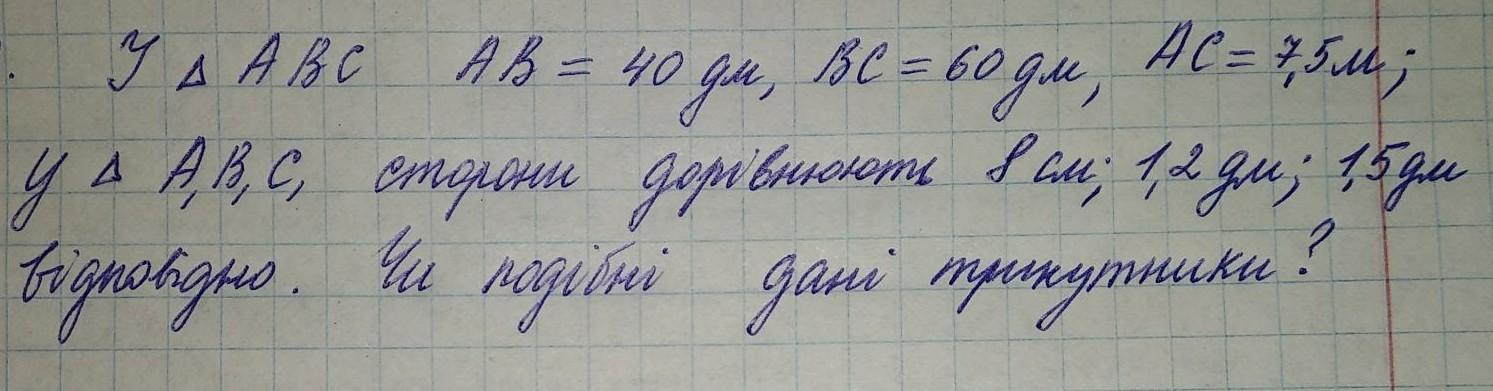 У Δ ABC AB = 40 дм, BC = 60 дм, AC = 7,5м;
у Δ A₁B₁C₁ сторони дорівнюють 8 см; 1,2 дм; 1,5дм
відповідно. Чи подібні дані трикутники?